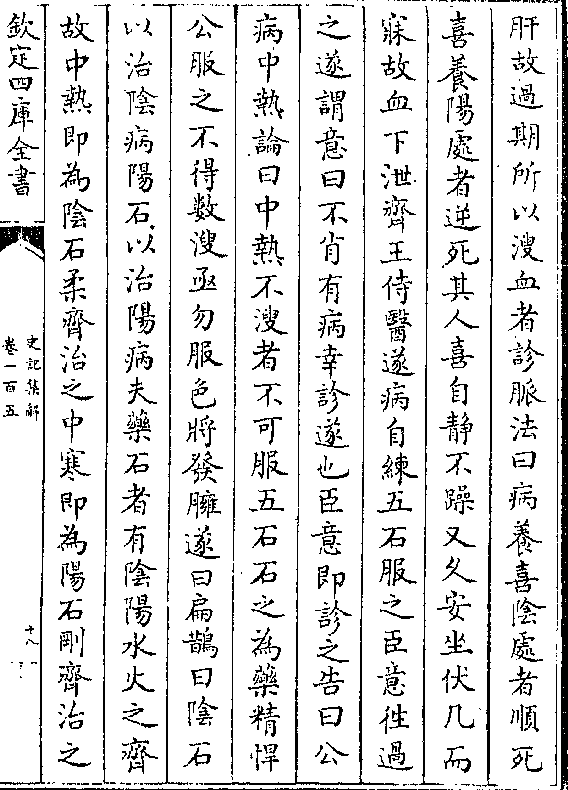 肝故過期所以溲血者診脈法曰病養喜陰處者順死
喜養陽處者逆死其人喜自静不躁又乆安坐伏几而
寐故血下泄齊王侍醫遂病自練五石服之臣意徃過
之遂謂意曰不肖有病幸診遂也臣意即診之告曰公
病中熱論曰中熱不溲者不可服五石石之為藥精悍
公服之不得數溲亟勿服色將發臃遂曰扁鵲曰陰石
以治陰病陽石以治陽病夫藥石者有陰陽水火之齊
故中熱即為陰石柔齊治之中寒即為陽石剛齊治之
欽定四庫全書
史記集解
卷一百五
十八